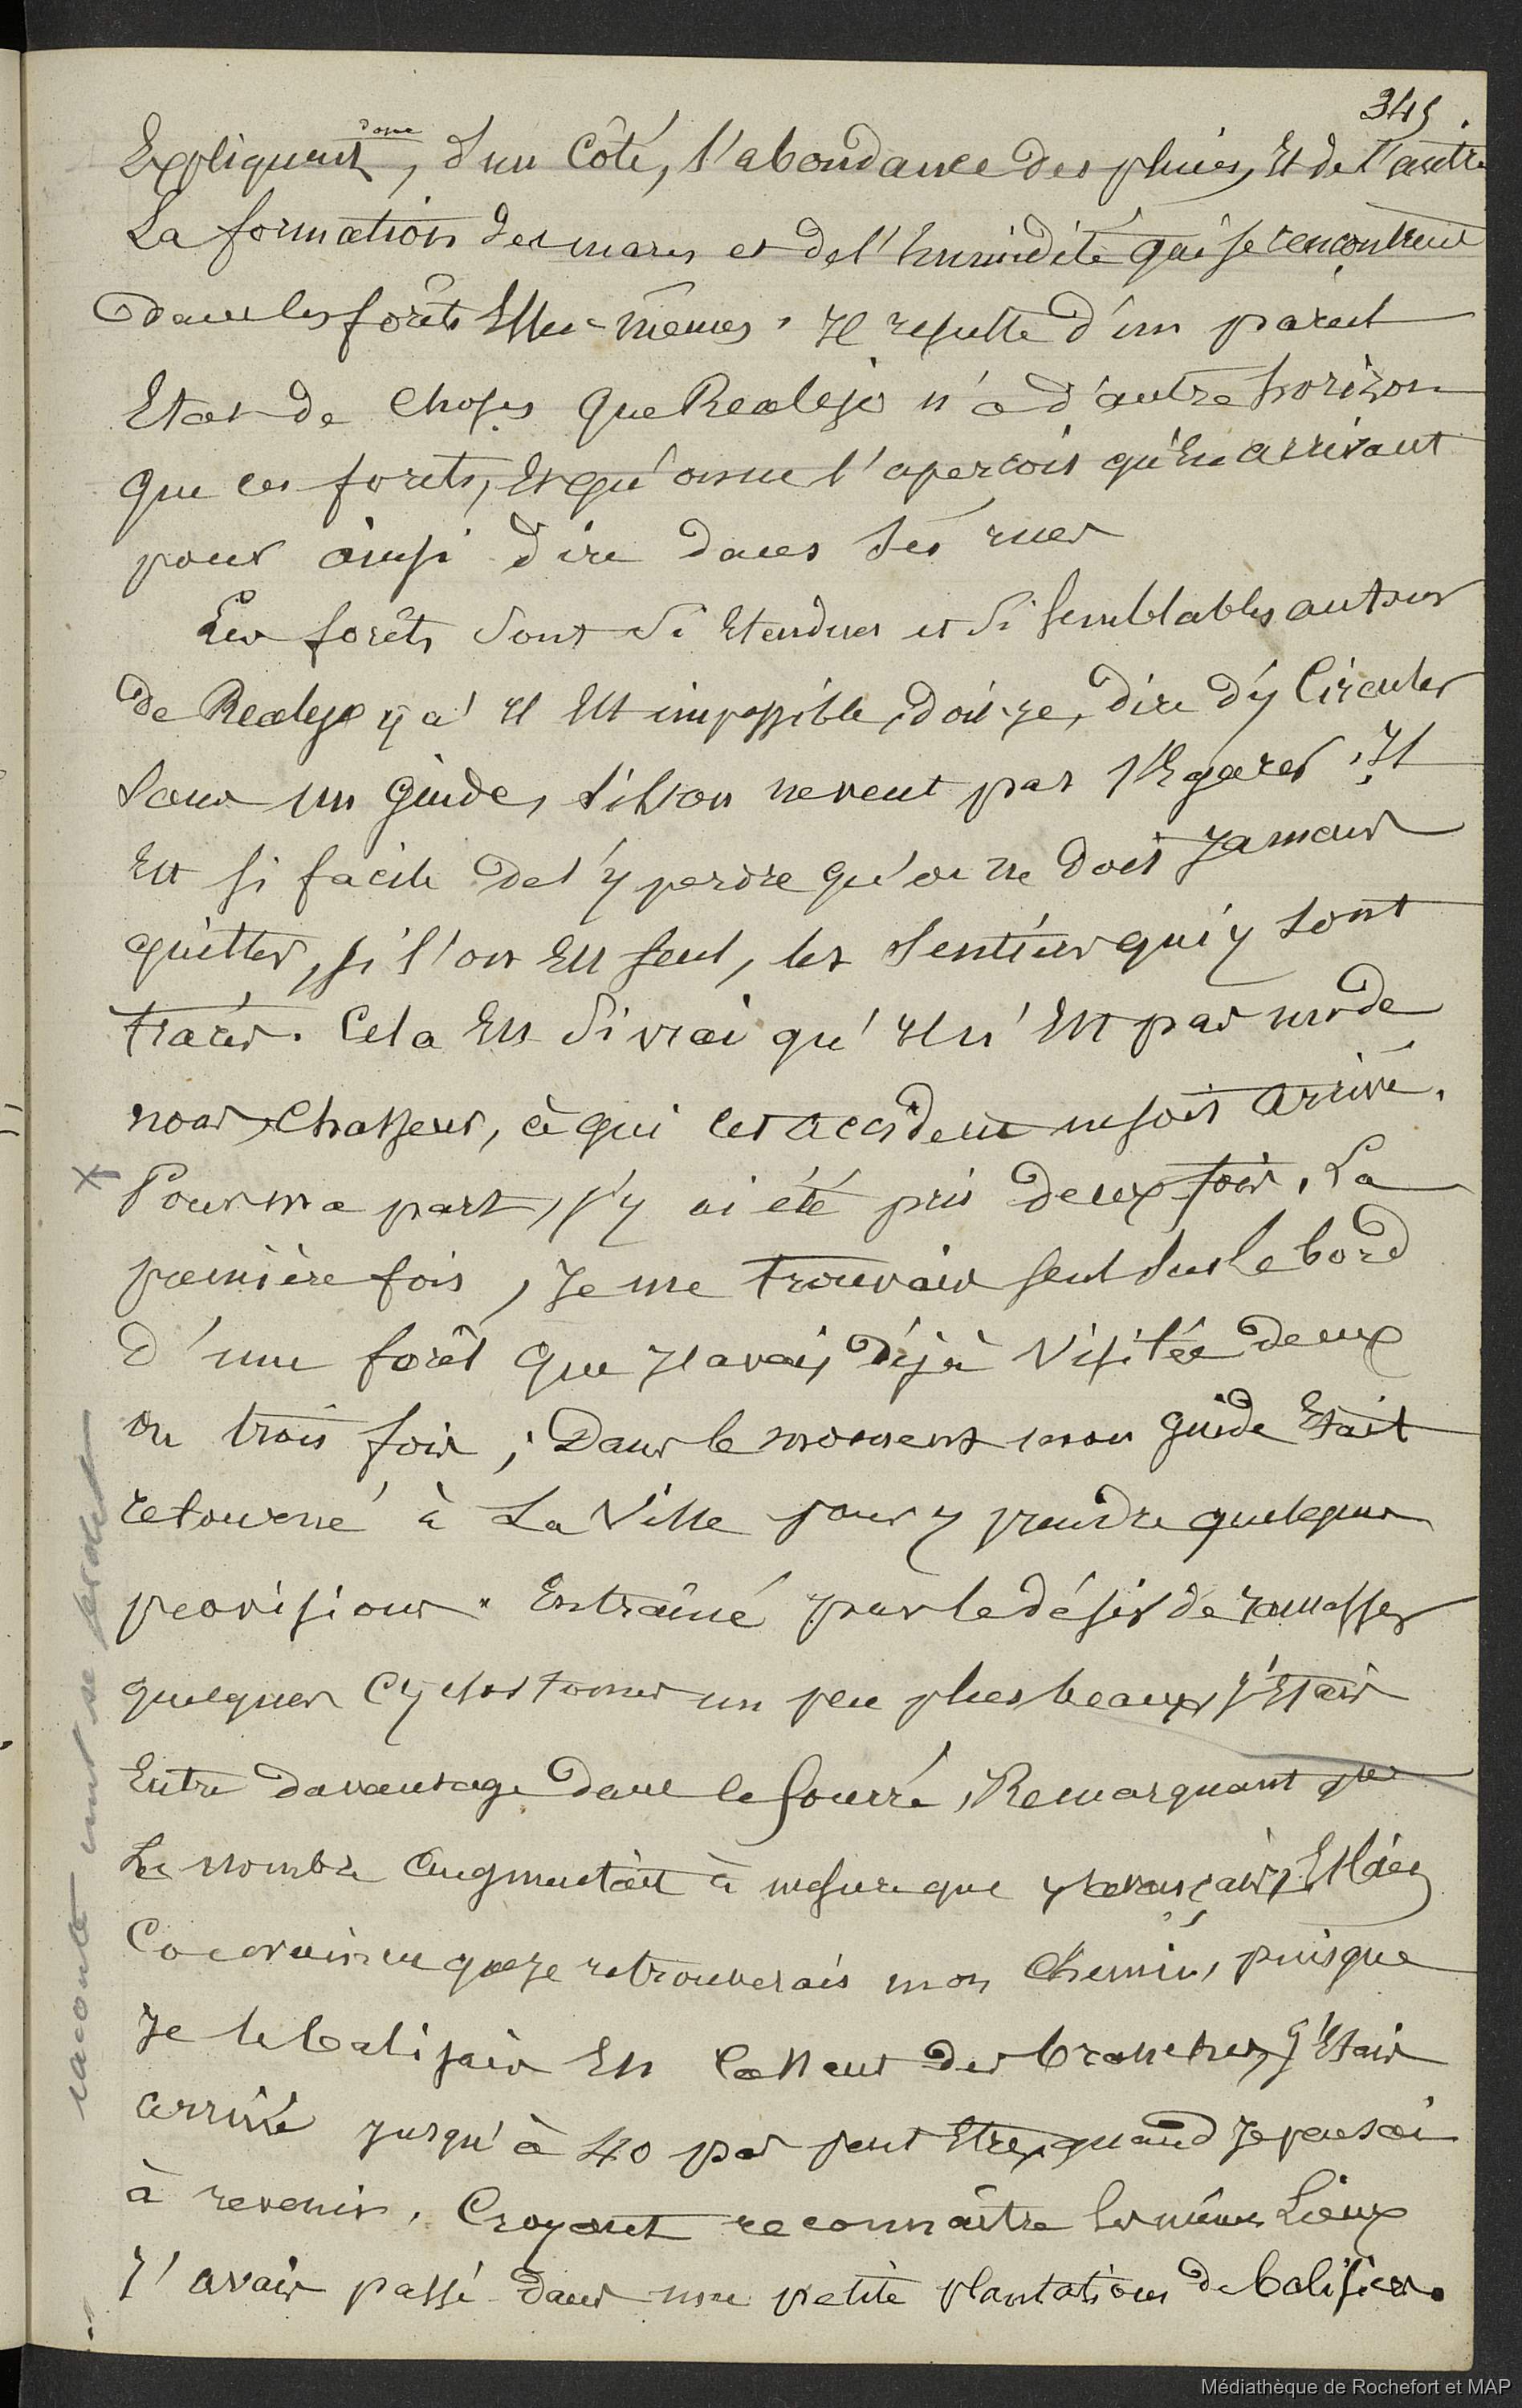 345.
donc
Expliquent, d'un Côté, l'abondance des pluies, Et de l'autre
La formation des mares et de l'humidité qui se rencontrent
dans les forêts Elles-mêmes. Il resulte d'un pareil
Etat de choses que Realejo n'a d'autre horizon
que ces forets, Et qu'on ne l'apercoit qu'En arrivant
pour ainsi dire dans ses rues
Les forêts sont si Etendues et si semblables autour
de Realejo qu'il Est impossible, dois-je, dire d'y Circuler
sans un guide, si l'on ne veut pas s'Egarer. Il
Est si facile de s'y perdre qu'on ne doit Jamais
quitter, si l'on Est seul, les sentiers qui y sont
tracés. Cela Est si vrai qu'il n'Est pas un de
nous, Chasseurs, à qui cet accident ne soit arrivé.
Pour ma part, j'y ai été pris deux fois. La
première fois, Je me trouvais seul sur le bord
d'une forêt que J'avais déjà visitée deux
ou trois fois; Dans le moment mon guide Etait
retourné à La Ville pour y prendre quelques
provisions. Entraîné par le désir de ramasser
quelques Cyclostomes un peu plus beaux, j'Etais
Entré davantage dans le fourré, Remarquant que
Le nombre augmentait à mesure que j'avançais, Et bien
Convaincu que Je retrouverais mon Chemin, puisque
Je le balisais En Cassant des branches, j'Etais
arrivé jusqu'à 40 pas peut Etre, quand Je pensai
à revenir. Croyant reconnaître les mêmes Lieux
J'avais passé dans une petite plantation de balisiers.
x
raconte une se
Médiathèque de Rochefort et MAP